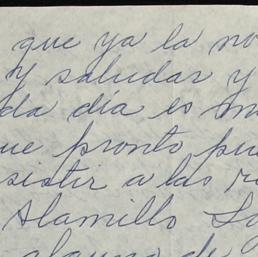 que ya la no
y saludar y
da día es m
ue pronto pue
sistir a las r
Alamillo
alguno de